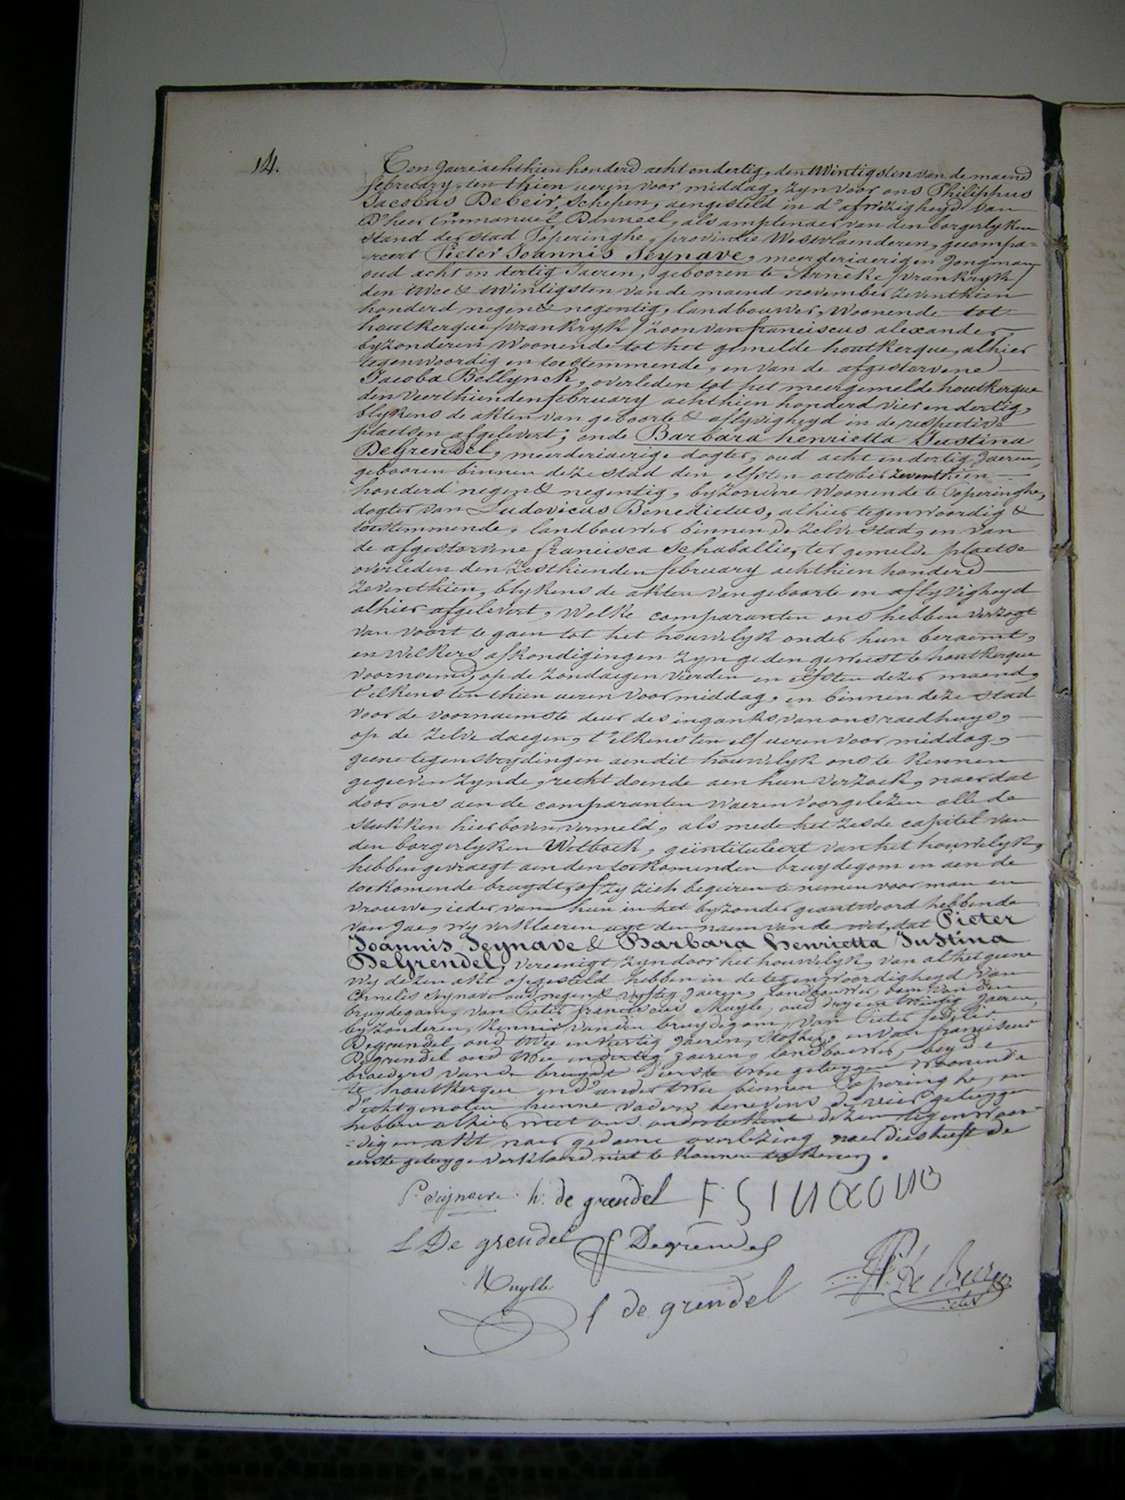 14.
Ten Jaere achthien honderd acht en dertig, den twintigsten van de maend
february, ten thien ueren voor middag, zyn voor ons Philippus
Jacobus Debeir, Schepen, aengesteld in d'afwezigheyd van
D'heer Emmanuel Dinneel, als amptenaer van den borgerlyken
stand der stad Poperinghe, provintie Westvlaenderen, gecompa-
-reert Pieter Joannis Seynave, meerderjaerigen jongman
oud acht en dertig Jaeren, gebooren te Arneke, vrankryk,
den twee & twintigsten van de maend november zeventhien
honderd negen & negentig, landbouwer, woonende tot
houtkerque, vrankryk, zoon van franciscus alexander,
byzonderen woonende tot het gemelde houtkerque, alhier
tegenwoordig en toestemmende, en van de afgestorvene
Jacoba Bollynck, overleden tot het meergemelde houtkerque
den veerthienden february achthien honderd vier en dertig,
blykens de akten van geboorte & aflyvigheyd in de respective
plaetsen afgelevert; ende Barbara henrietta Justina
DeGrendel, meerderjaerige dogter, oud acht en dertig Jaeren,
gebooren binnen deze stad den elfsten october zeventhien
honderd negen & negentig, byzondere woonende te Poperinghe,
dogter van Ludovicus Benedictus, alhier tegenwoordig &
toestemmende, landbouwer binnen de zelve stad, en van
de afgestorvene francisca Schaballie, ter gemelde plaetse
overleden den zesthienden february achthien honderd
zeventhien, blykens de akten van geboorte en aflyvigheyd
alhier afgelevert, welke comparanten ons hebben verzogt
van voort te gaen tot het houwelyk onder hun beraemt,
en welkers afkondigingen zyn gedaen geweest te houtkerque
voornoemd, op de zondaegen vierden en elfsten dezer maend,
t'elkens ten thien ueren voor middag, en binnen deze stad
voor de voornaemste deur des ingangs van ons raedhuys,
op de zelve daegen, t'elkens ten elf ueren voor middag,
geene tegenstrydingen aen dit houwelyk ons te kennen
gegeeven zynde, recht doende aen hun verzoek, naer dat
door ons aen de comparanten waeren voorgelezen alle de
stukken hier boven vermeld, als mede het zesde capitel van
den borgerlyken Wetboek, geïntituleert van het houwelyk,
hebben gevraegt aen den toekomenden bruydegom en aen de
toekomende bruydt, of zy zich begeiren te nemen voor man en
vrouwe, ieder van hun in het byzonder geantwoord hebbende
van Jae, wy verklaeren uyt den naem van de wet, dat Pieter
Joannis Seynave & Barbara henrietta Justina
DeGrendel, vereenigt zyn door het houwelyk, van al het geene
wy dezen akt opgesteld hebben in de tegenwoordigheyd van
Cornelis Seynave oud negen & vyftig Jaeren, landbouwer, oom van den
bruydegom, van Pieter franciscus Muylle, oud dry en twintig Jaeren,
byzonderen, kennis van den bruydegom, van Pieter
Degrendel, oud twee en veertig Jaeren, en van franciscus
Degrendel oud twee en dertig Jaeren, landbouwer, beyde
broeders van de bruydt d'eerste twee getuygen woonende
te houtkerque en d'ander twee binnen Poperinghe, en
d'echtgenoten hunne vaders benevens de vier getuygen
hebben alhier met ons onderteekent dezen tegenwoor-
-digen akt naer gedaene overlezing, naer dies heeft de
eerste getuyge verklaerd niet te konnen teekenen.
P. Seynave. h: de grendel F SINAVE
L De grendel f Degrendel
Muylle
f de grendel
Ph. J. De Beir